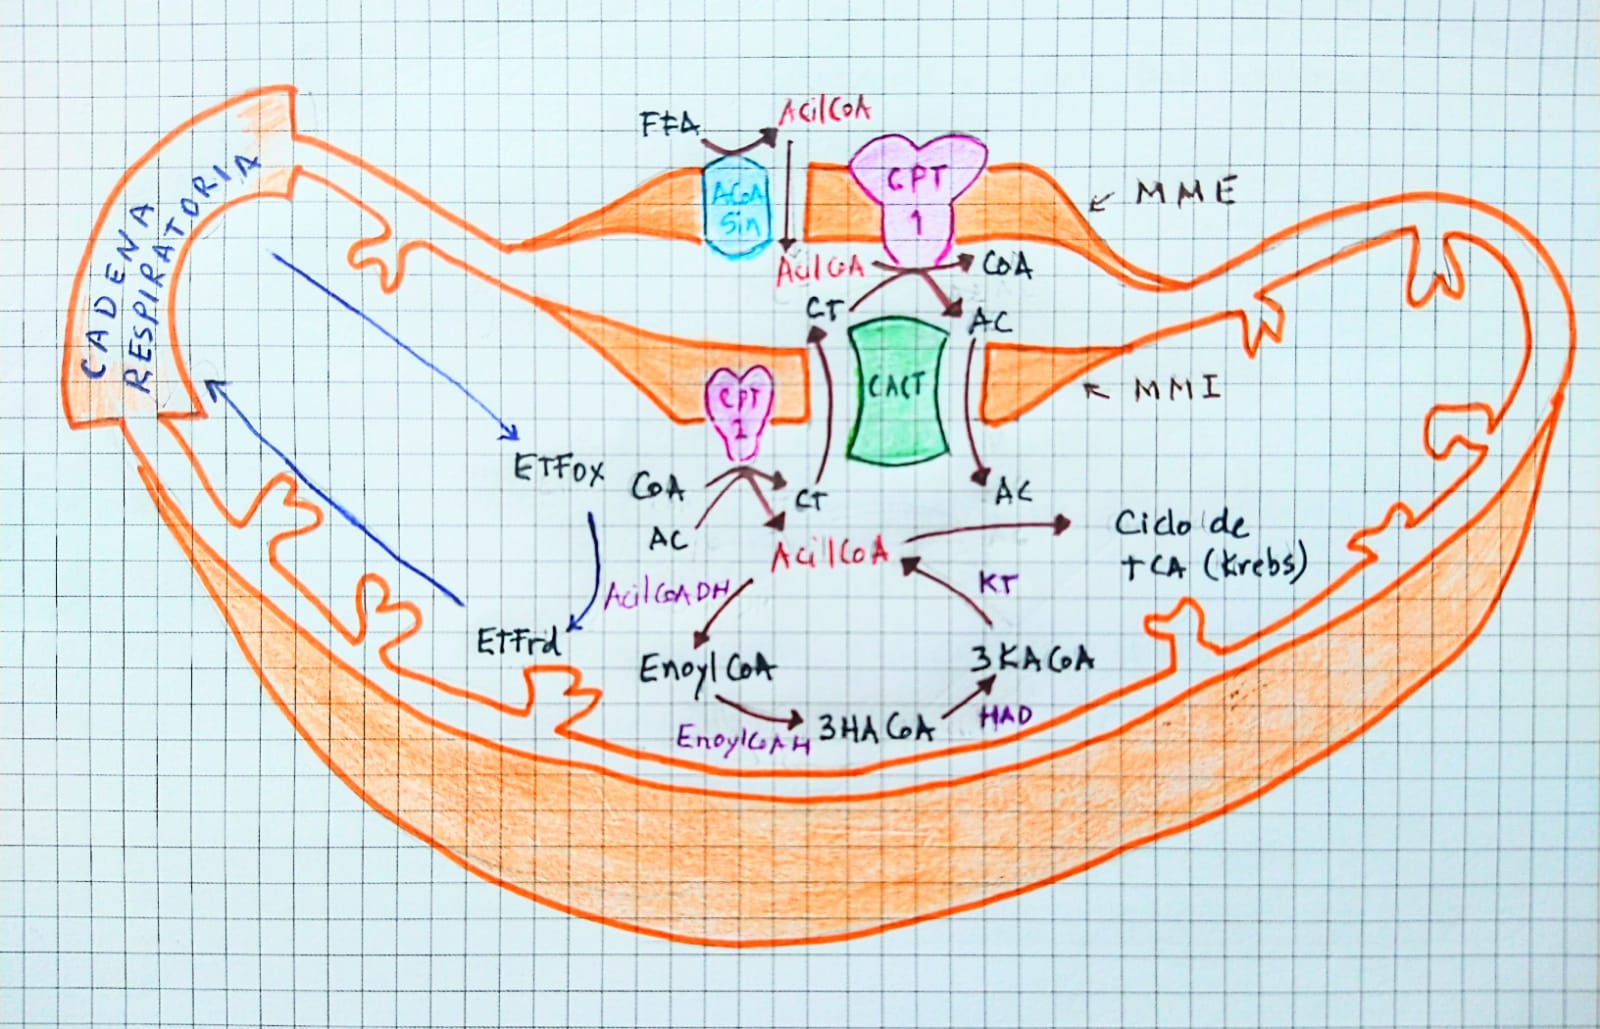 FFA
AcilCoA
ACoA
Sin
CPT
1
MME
CADENA
RESPIRATORIA
AcilCoA
CoA
CT
AC
CACT
MMI
CPT
2
ETFox
CoA
CT
AC
AC
AcilCoA
Ciclo de
TCA (Krebs)
AcilCoADH
KT
ETFrd
EnoylCoA
3KACoA
EnoylCoAH
3HACoA
HAD